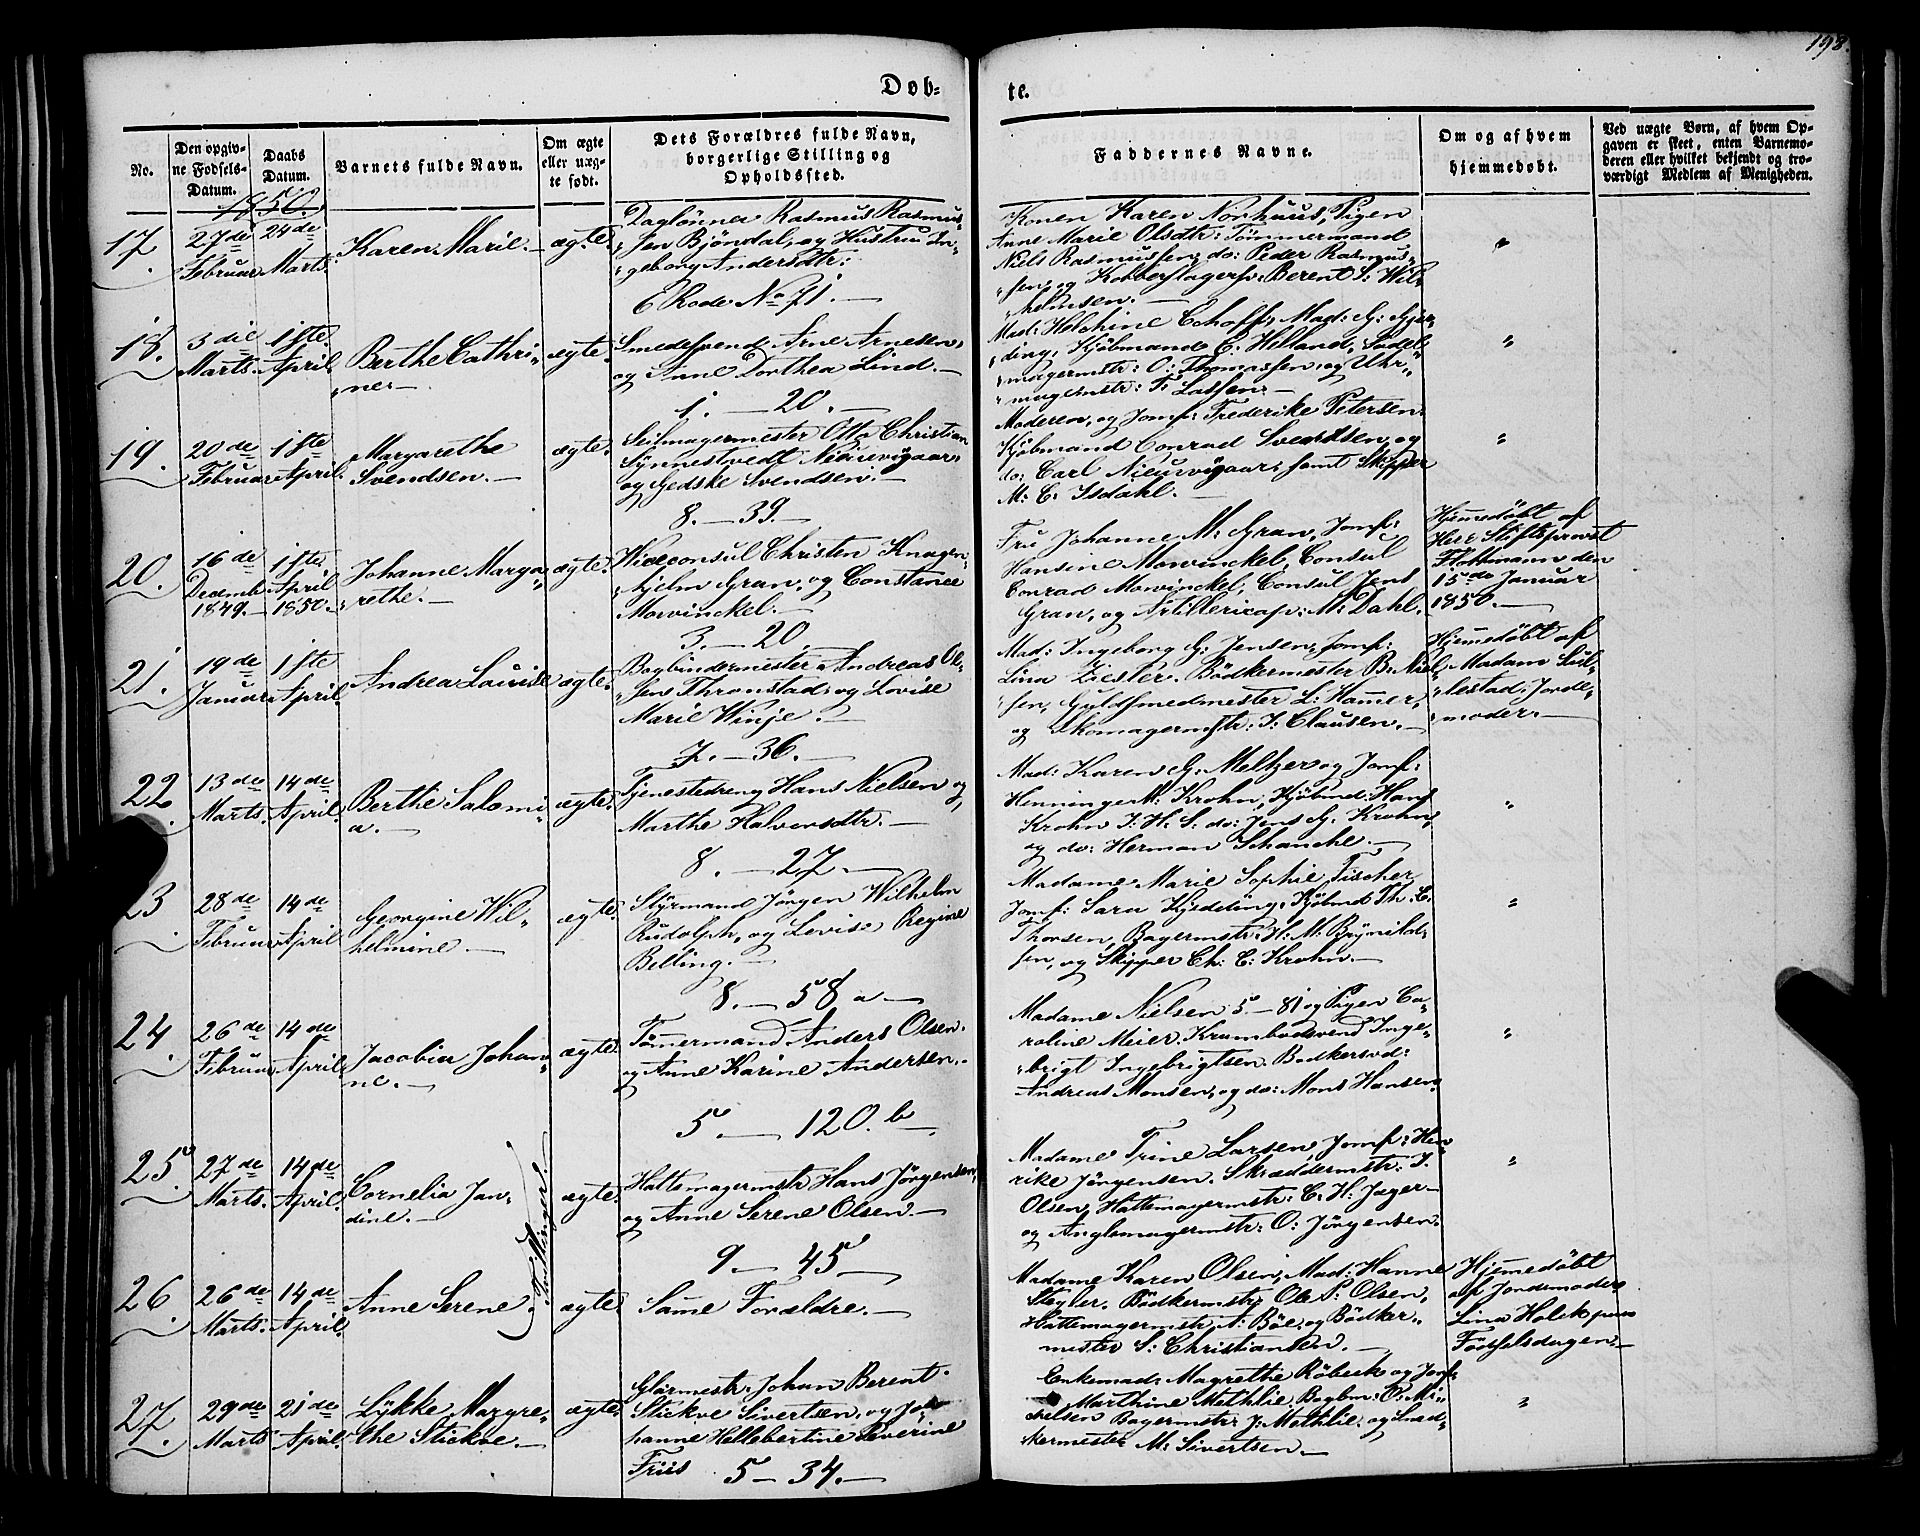 198.
Døb-
te.
No.
Den opgiv-
ne Fødsels-
Datum.
Daabs
Datum.
Barnets fulde Navn.
Om ægte
eller uæg-
te født.
Dets Forældres fulde Navn,
borgerlige Stilling og
Opholdssted.
Faddernes Navne.
Om og af hvem
hjemmedøbt.
Ved uægte Børn, af hvem Op-
gaven er skeet, enten Barnemo-
deren eller hvilket bekjendt og tro-
værdigt Medlem af Menigheden.
1850.
17.
27de
Februar
24de
Marts.
Karen Marie.
ægte.
Daglönner Rasmus Rasmus-
sen Bjöndal, og Hustru In-
geborg Andersdtr:
6 Rode No 71.
Konen Karen Norhuus, Pigen
Anne Marie Olsdtr: Tömmermand
Niels Rasmussen, do: Peder Rasmus-
sen, og Kobberslagersv: Berent S: Wil-
helmsen.
"
18.
3die
Marts.
1ste
April.
Berthe Cathri-
ne.
ægte.
Smedesvend Arne Arnesen,
og Anne Dorthea Lind.
1. — 20.
Mad: Helchine Mad: G: Gjer-
ding, Kjöbmand C: Helland, Sadel-
magermstr: O: Thomassen, og Uhr-
magermstr: F: Lassen.
"
19.
20de
Februar
1ste
April.
Margarethe
Svendsen.
ægte.
Seilmagermester Otto Christian
Synnestvedt Nieuwejaar
og Gedske Svendsen.
8. — 39.
Moderen, og Jomf: Frederike Petersen.
Kjöbmand Conrad Svendsen, og
do: Carl Nieuwejaar, samt Skipper
M: C: Isdahl.
"
20.
16de
Decemb
1849.
1ste
April
1850.
Johanne Marga-
rethe.
ægte.
Viceconsul Christen Knagen-
hjelm Gran, og Constance
Mowinckel.
3. — 20.
Fru Johanne M: Gran, Jomf:
Hansine Mowinckel, Consul
Conrad Mowinckel, Consul Jens
Gran, og Artillericap: M: Dahl.
Hjemedöbt af
Herr Stiftsprovst
den
15de Januar
1850.
21.
19de
Januar
1ste
April.
Andrea Louise
ægte.
Bogbindermester Andreas Ol-
sen Thronstad, og Lovise
Marie Winje.
7. — 36.
Mad: Ingeborg G: Jensen, Jomf:
Lina Ziesler. Bödkermester B: Niel-
sen, Guldsmedmester L: Hamer,
og Skomagermstr: J: Clausen.
Hjemedöbt af
Madam Sul-
lestad, Jorde-
moder.
22.
13de
Marts.
14de
April.
Berthe Salomi-
a.
ægte.
Tjenestedreng Hans Nielsen og
Marthe Halvorsdtr.
8. — 27.
Mad: Karen G: Meltzer og Jomf:
Henninge M: Krohn, Kjöbmd: Hans
Krohn J: H: S: do: Jens G: Krohn,
og do: Herman Schanche.
"
23
28de
Februar
14de
April
Georgine Wil-
helmine.
ægte.
Styrmand Jörgen Wilhelm
Rudolph, og Lovise Regine
Belling.
8. — 58 a
Madame Marie Sophie Fischer
Jomf: Sara Kysdeling, Kjöbmd Th: C:
Thorsen, Bagermstr: H: M: Brynild-
sen, og Skipper Ch: C: Krohn.
"
24.
26de
Februar
14de
April.
Jacobia Johan-
ne.
ægte.
Tömermand Anders Olsen.
og Anne Karine Andersen.
5. — 120. b.
Madame Nielsen 5. — 81 og Pigen Ca-
roline Meier. Krambodsvend Inge-
brigt Ingebrigtsen. Bödkersvd:
Andreas Monsen, og do: Mons Hansen.
"
25.
27de
Marts.
14de
April.
Cornelia Jan-
dine.
Tvillinger.
ægte.
Hattemagermstr Hans Jörgensen,
og Anne Serene Olsen.
9 — 45
Madame Trine Larsen, Jomf: Hen-
rike Jörgensen. Skræddermstr: J.
Olsen, Hattemagermstr: C: H: Jæger
og Anglemagermstr: O: Jörgensen.
"
26.
26de
Marts.
14de
April.
Anne Serene.
ægte.
Same Forældre.
Madame Karen Olsen, Mad: Hanne
Stegler. Bödkermstr Ole P: Olsen,
Hattemagermstr A: Böe, og Bödker-
mester S: Christiansen.
Hjemedöbt
af Jordemoder
Lina Holck paa
Födselsdagen.
27.
29de
Marts
21de
April.
Lykke Margre-
the Stickoe.
ægte.
Glarmestr: Johan Berent
Stickoe Sivertsen, og Jo-
hanne Hellebertine Severine
Friis 5 — 34.
Enkemad: Magrethe Röbeck og Jomf:
Marthine Methlie, Bogbm: O: Mi-
chelsen Bagermstr: J: Methlie, og Sned-
kermester M: Sivertsen.
"